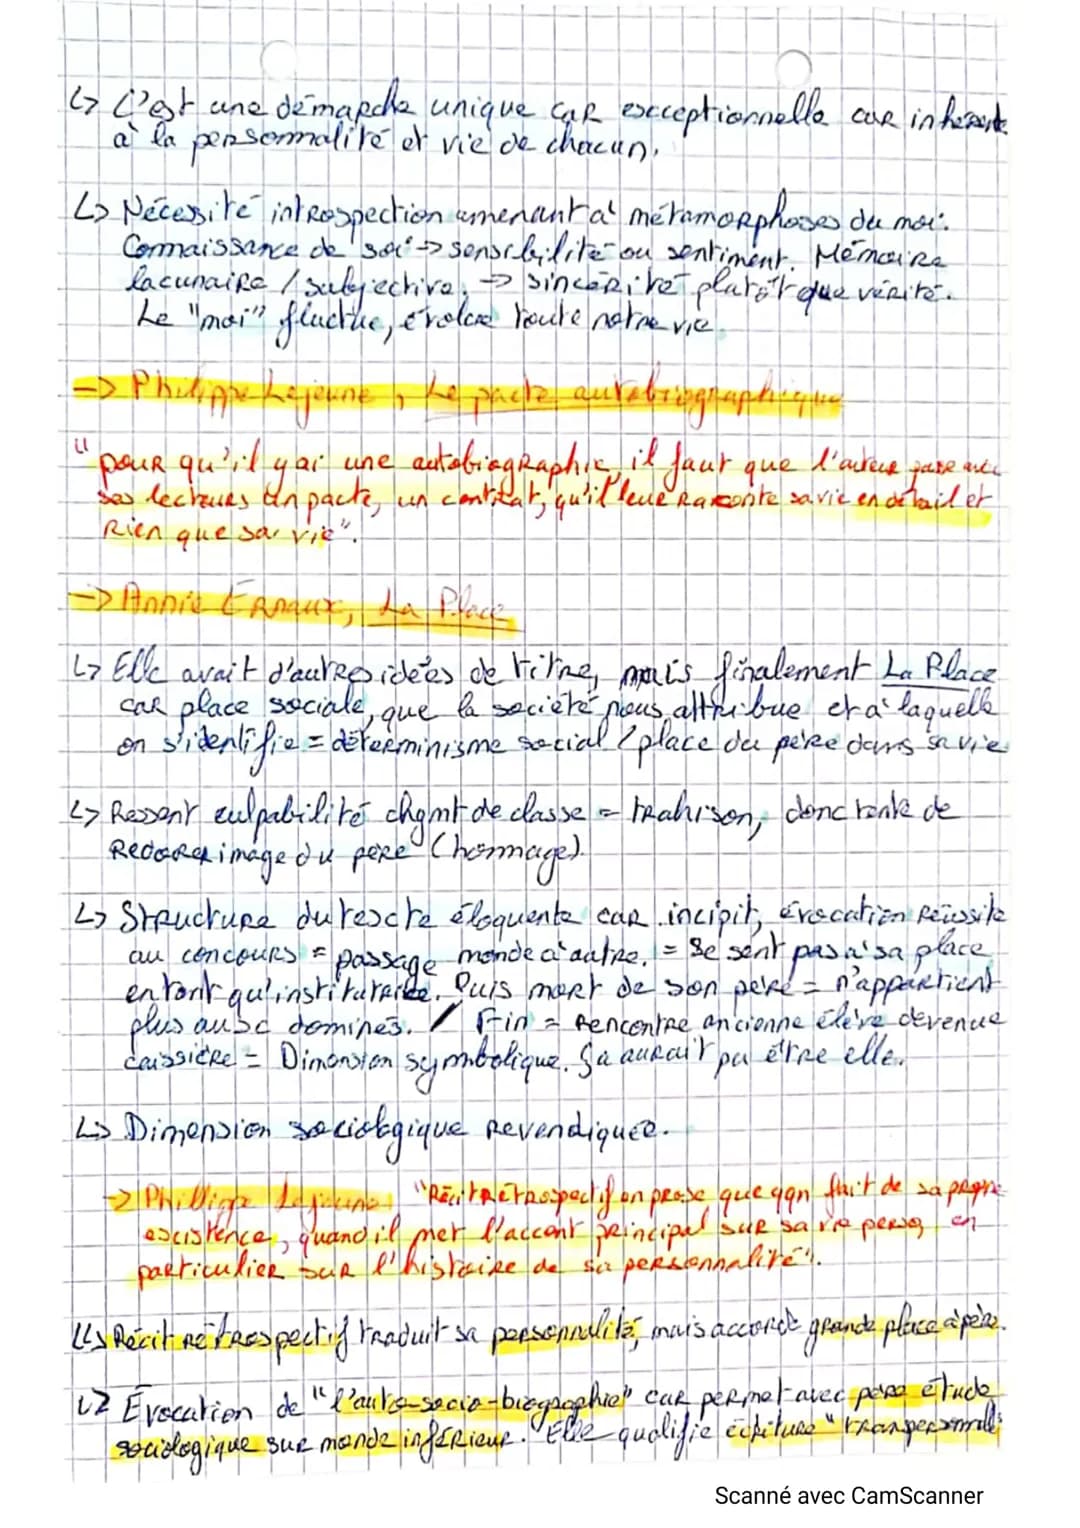 ↳ C'est une démarche unique car exceptionnelle car inhérente
à la personnalité et vie de chacun.
↳ Nécessité introspection amenant à métamorphoses du moi.
Connaissance de soi → sensibilité ou sentiment. Mémoire
lacunaire / subjective. → sincérité plutôt que vérité.
Le "moi" fluctue, évolue toute notre vie.
→ Philippe Lejeune, Le pacte autobiographique
"pour qu'il y ai une autobiographie, il faut que l'auteur passe avec
ses lecteurs un pacte, un contrat, qu'il leur raconte sa vie en détail et
rien que sa vie".
→ Annie Ernaux, La Place
↳ Elle avait d'autres idées de titre, mais finalement La Place
car place sociale, que la société nous attribue et à laquelle
on s'identifie = déterminisme social / place du père dans sa vie
↳ Ressent culpabilité chgmt de classe = trahison, donc tente de
redorer image du père (hommage).
↳ Structure du texte éloquente car incipit, évocation réussite
au concours = passage monde à autre. = Se sent pas à sa place
en tant qu'institutrice. Puis mort de son père = n'appartient
plus aux dominés. / Fin = Rencontre ancienne élève devenue
caissière = Dimension symbolique. Ça aurait pu être elle.
↳ Dimension sociologique revendiquée.
→ Phillipe Lejeune "Récit rétrospectif en prose que qqn fait de sa propre
existence, quand il met l'accent principal sur sa vie perso, en
particulier sur l'histoire de sa personnalité".
↳ Récit rétrospectif traduit sa personnalité, mais accorde grande place à père.
↳ Évocation de "l'auto-socio-biographie" car permet avec père étude
sociologique sur monde inférieur. Elle qualifie écriture "transpersonnelle
Scanné avec CamScanner